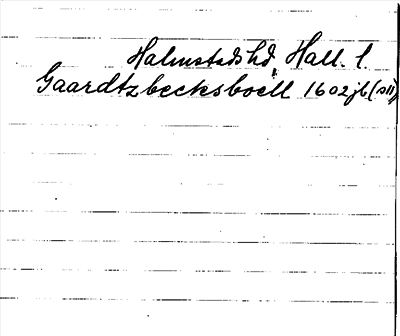 Halmstads hd, Hall. l.
Gaardtzbecksboell 1602 jb (s11)